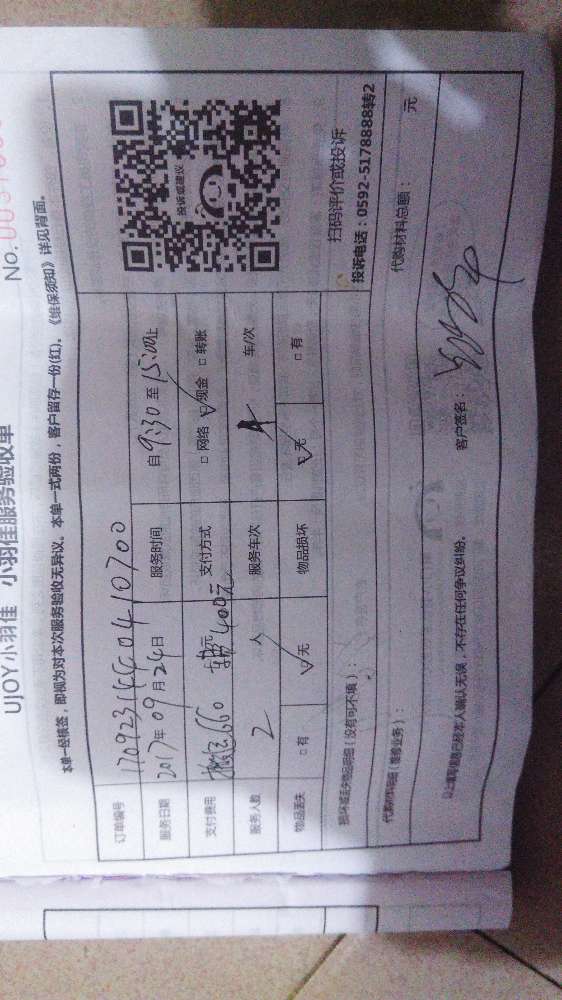 UJOY小羽佳 小羽佳服务验收单
No.
本单一经核签，即视为对本次服务验收无异议。本单一式两份，客户留存一份(红)。《维保须知》详见背面。
订单编号
服务日期 2017年09月24日 服务时间 自9:30至15:00止
支付费用 660 400元 支付方式 □网络 ☑现金 □转账
服务人数 2 人 服务车次 车/次
物品丢失 □有 ☑无 物品损坏 ☑无 □有
投诉或建议
扫码评价或投诉
投诉电话：0592-5178888转2
损坏或丢失物品明细（没有可不填）：
代购材料明细（维修业务）：
代购材料总额： 元
以上填写信息已经本人确认无误，不存在任何争议纠纷。 客户签名：